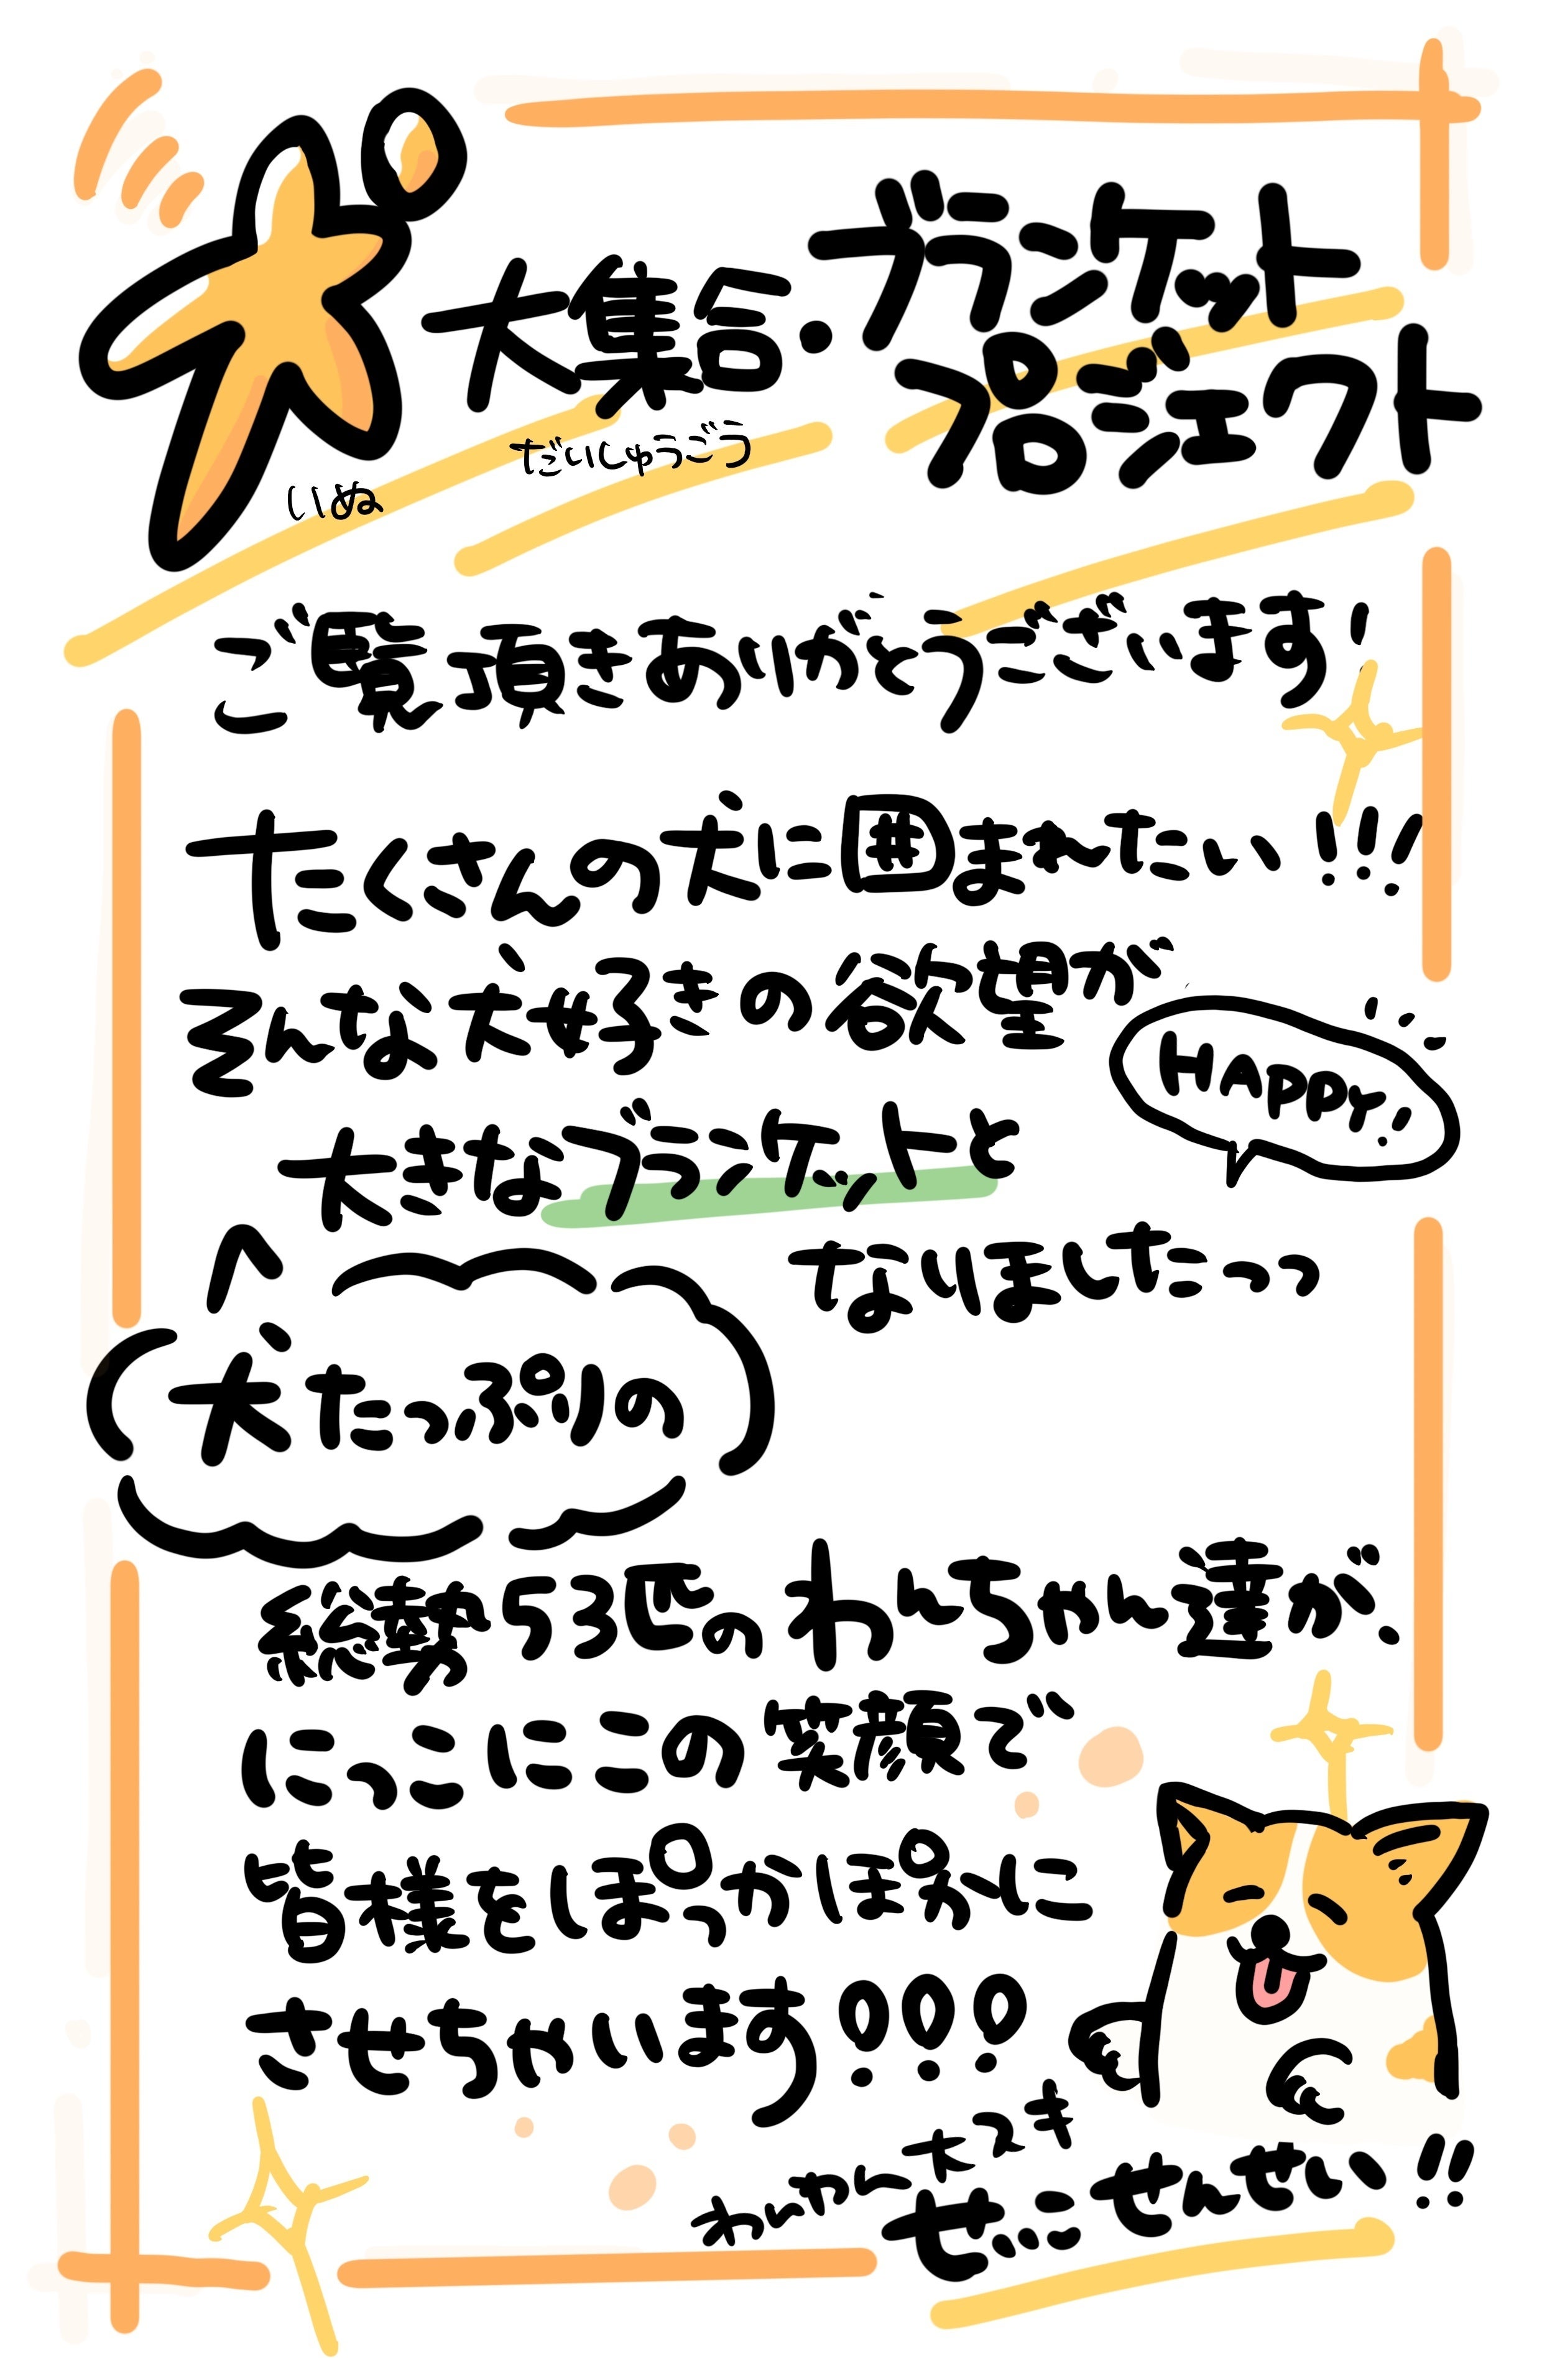 犬大集合・ブランケット
プロジェクト
いぬ
だいしゅうごう
ご覧頂きありがとうございます!
たくさんの犬に囲まれたい!!!
そんな犬好きの欲望が
HAPPY!
大きなブランケットと
なりましたーっ
犬たっぷりの
総勢53匹のわんちゃん達が、
にっこにこの笑顔で
皆様をぽっかぽかに
させちゃいます!!!
わんゃん大好き
ぜにせんせい!!